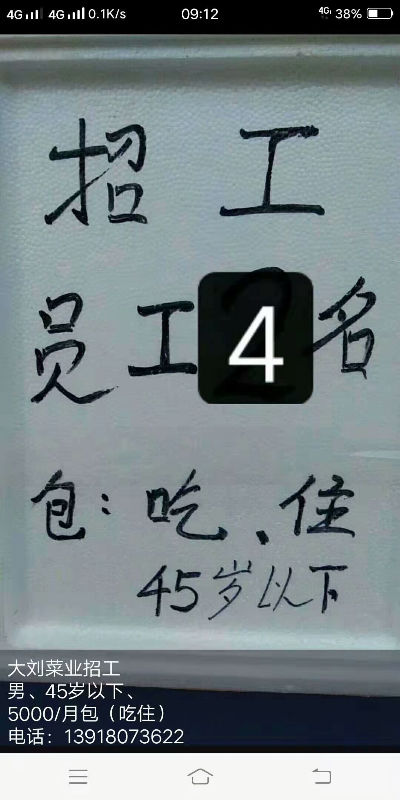 4G 4G 0.1K/s 09:12 4G 38%
招 工
员工4名
包：吃、住
45岁以下
大刘菜业招工
男、45岁以下、
5000/月包（吃住）
电话：13918073622